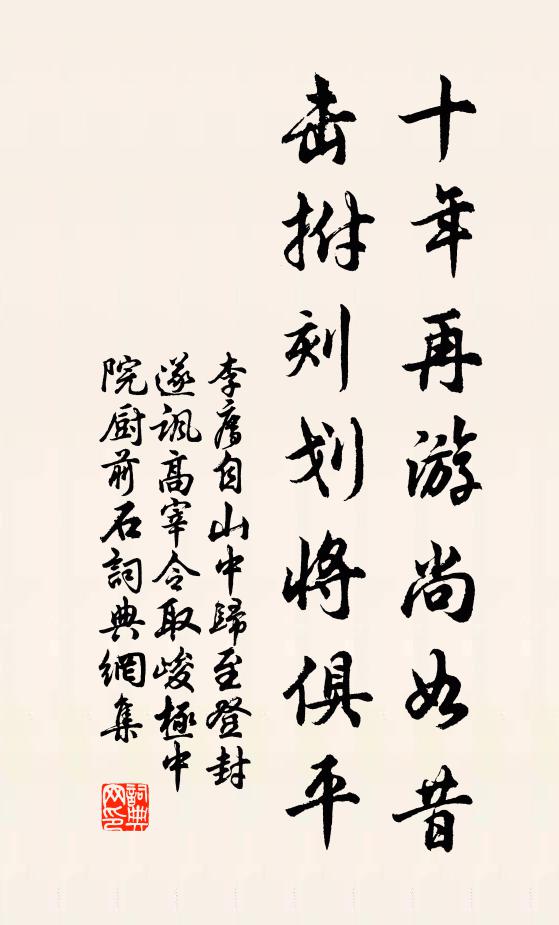 十年再游尚如昔
击拊刻划将俱平
李廌自山中歸至登封
遂諷高宰令取峻極中
院厨前石詞典網集
詞典网印